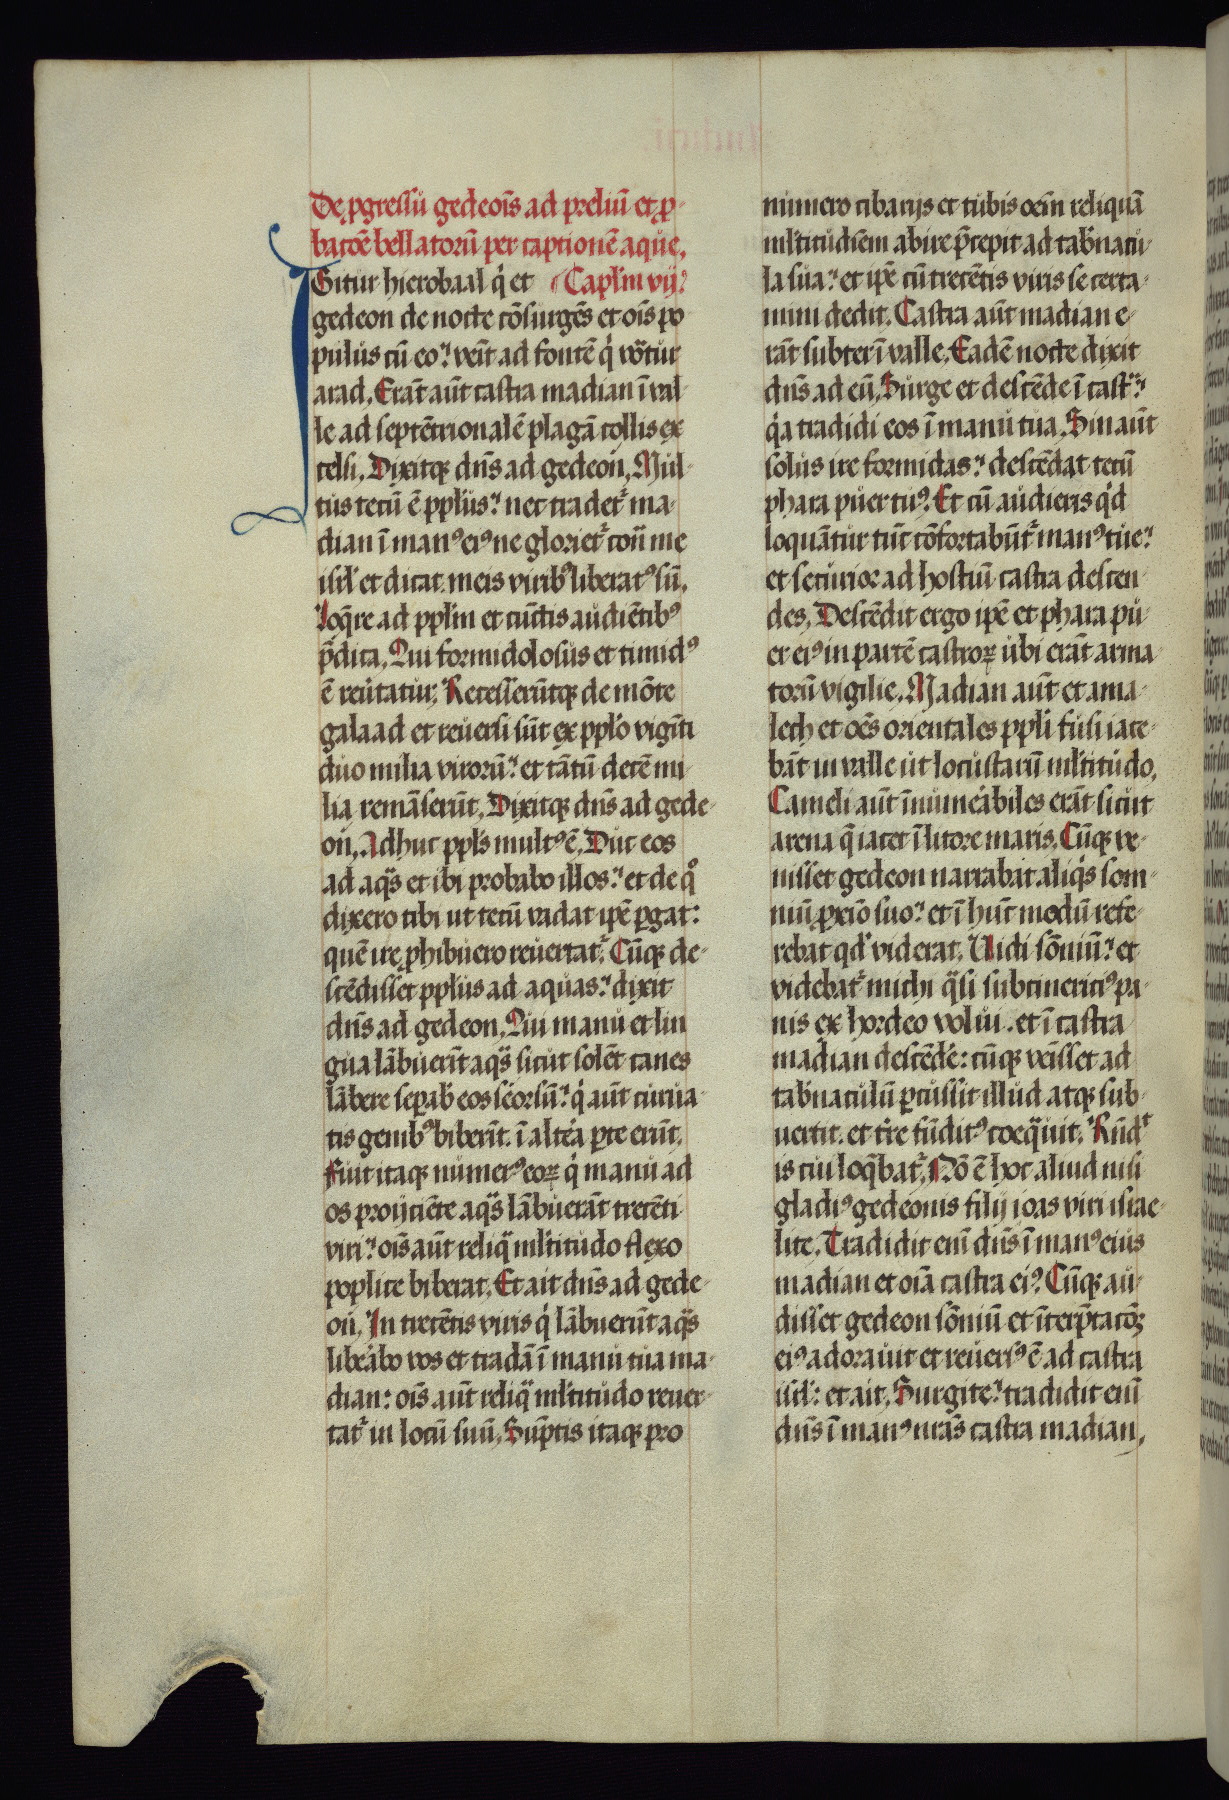 De ꝓgressu gedeoīs ad preliū et ꝓ-
batōē bellatorū per captionē aque.
IGitur hierobaal q' et Caplm vij.
gedeon de nocte cōsurgēs et oīs po
pulus cū eo: veīt ad fontē q' vōtur
arad. Erāt aūt castra madian ī val
le ad septētrionalē plagā collis ex
celsi. Dixitqꝫ dn̄s ad gedeon. Mul-
tus tecū ē ppl̄us: nec tradet᷑ ma-
dian ī manꝰ eiꝰ ne gloriet᷑ con̄ me
isrl̄ et dicat. meis viribꝰ liberatꝰ sū.
Loq̄re ad pplm̄ et cunctis audiētibꝰ
p̄dica. Qui formidolosus et timidꝰ
ē reūtatur. Recesserūtqꝫ de mōte
galaad et reuersi sūt ex pplo vigīti
duo milia virorū: et tātū decē mi-
lia remāserūt. Dixitqꝫ dn̄s ad gede-
on. Adhuc ppl's multꝰ ē. Duc eos
ad aq̄s et ibi probabo illos: et de qͦ
dixero tibi ut tecū vadat ip̄e ꝑgat:
quē ire ꝓhibuero reuertat᷑. Cūqꝫ de-
scēdisset ppl̄us ad aquas: dixit
dn̄s ad gedeon. Qui manu et lin
gua lābuerīt aq̄s sicut solēt canes
lābere seꝑab' eos seorsū: q' aūt curua-
tis genibꝰ biberīt. ī alt'a ꝑte erūt.
Fuit itaqꝫ numerꝰ eoꝝ q' manu ad
os proijciēte aq̄s lābuerāt trecēti
viri: oīs aūt reliq̄ ml'titudo flexo
poplite biberat. Et ait dn̄s ad gede-
on. In trecētis viris q' lābuerūt aq̄s
liberabo vos et tradā ī manu tua ma-
dian: oīs aūt reliq̄ ml'titudo reuer-
tat᷑ in locū suū. Sūptis itaqꝫ pro
numero cibarijs et tubis oēm reliquā
ml'titudīem abire p̄cepit ad tab'nacu-
la sua: et ip̄e cū trecētis viris se certa-
mini dedit. Castra aūt madian e-
rāt subter ī valle. Eadē nocte dixit
dn̄s ad eū. Surge et descēde ī cast᷑:
q'a tradidi eos ī manu tua. Sin aūt
solus ire formidas: descēdat tecū
phara puer tuꝰ. Et cū audieris q'd
loquātur tūc cōfortabūt᷑ manꝰ tue:
et securior ad hostiū castra descen
des. Descēdit ergo ip̄e et phara pu-
er eiꝰ in partē castroꝝ ubi erāt arma
torū vigilie. Madian aūt et ama-
lech et oēs orientales ppli fusi iace-
bāt in valle ut locustarū ml'titudo.
Cameli aūt īnumerabiles erāt sicut
arena q̄ iacet ī litore maris. Cūqꝫ ve-
nisset gedeon narrabat aliq's som-
niū ꝓxīo suo: et ī hūc modū refe-
rebat qd' viderat. Uidi sōniū: et
videbat᷑ michi q̄si subcinericiꝰ pa-
nis ex hordeo volui. et ī castra
madian descēde: cūqꝫ veīsset ad
tab'naculū ꝑcussit illud atqꝫ sub-
uertit. et t're fūditꝰ coeq̄uit. Rn̄dꝭ
is cui loq̄bat᷑. Nō ē hoc aliud nisi
gladiꝰ gedeonis filij ioas viri israe-
lite. Tradidit enī dn̄s ī manꝰ eius
madian et oīa castra eiꝰ. Cūqꝫ au-
disset gedeon sōniū et īterp̄tacōꝫ
eiꝰ adorauit et reuersꝰ ē ad castra
isrl': et ait. Surgite: tradidit enī
dn̄s ī manꝰ nr̄as castra madian.